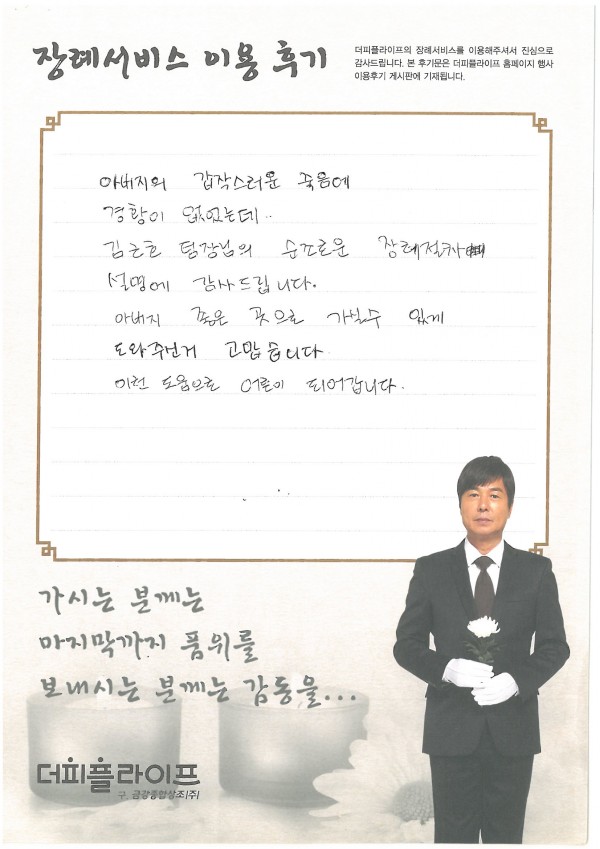 장례서비스 이용 후기
더피플라이프의 장례서비스를 이용해주셔서 진심으로
감사드립니다. 본 후기문은 더피플라이프 홈페이지 행사
이용후기 게시판에 기재됩니다.
아버지의 갑작스러운 죽음에
경황이 없었는데..
김근호 팀장님의 순조로운 장례절차
설명에 감사드립니다.
아버지 좋은 곳으로 가실수 있게
도와주신거 고맙습니다
이런 도움으로 어른이 되어갑니다.
가시는 분께는
마지막까지 품위를
보내시는 분께는 감동을...
더피플라이프
구. 금강종합상조(주)